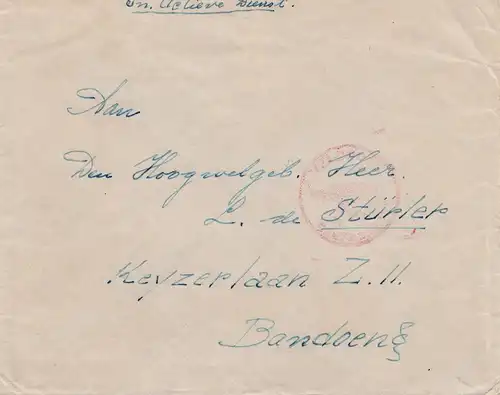 In Actieve Dienst.
Aan
Den Hoogwelgeb. Heer.
L. de Stürler
Keyzerlaan Z.11.
Bandoeng